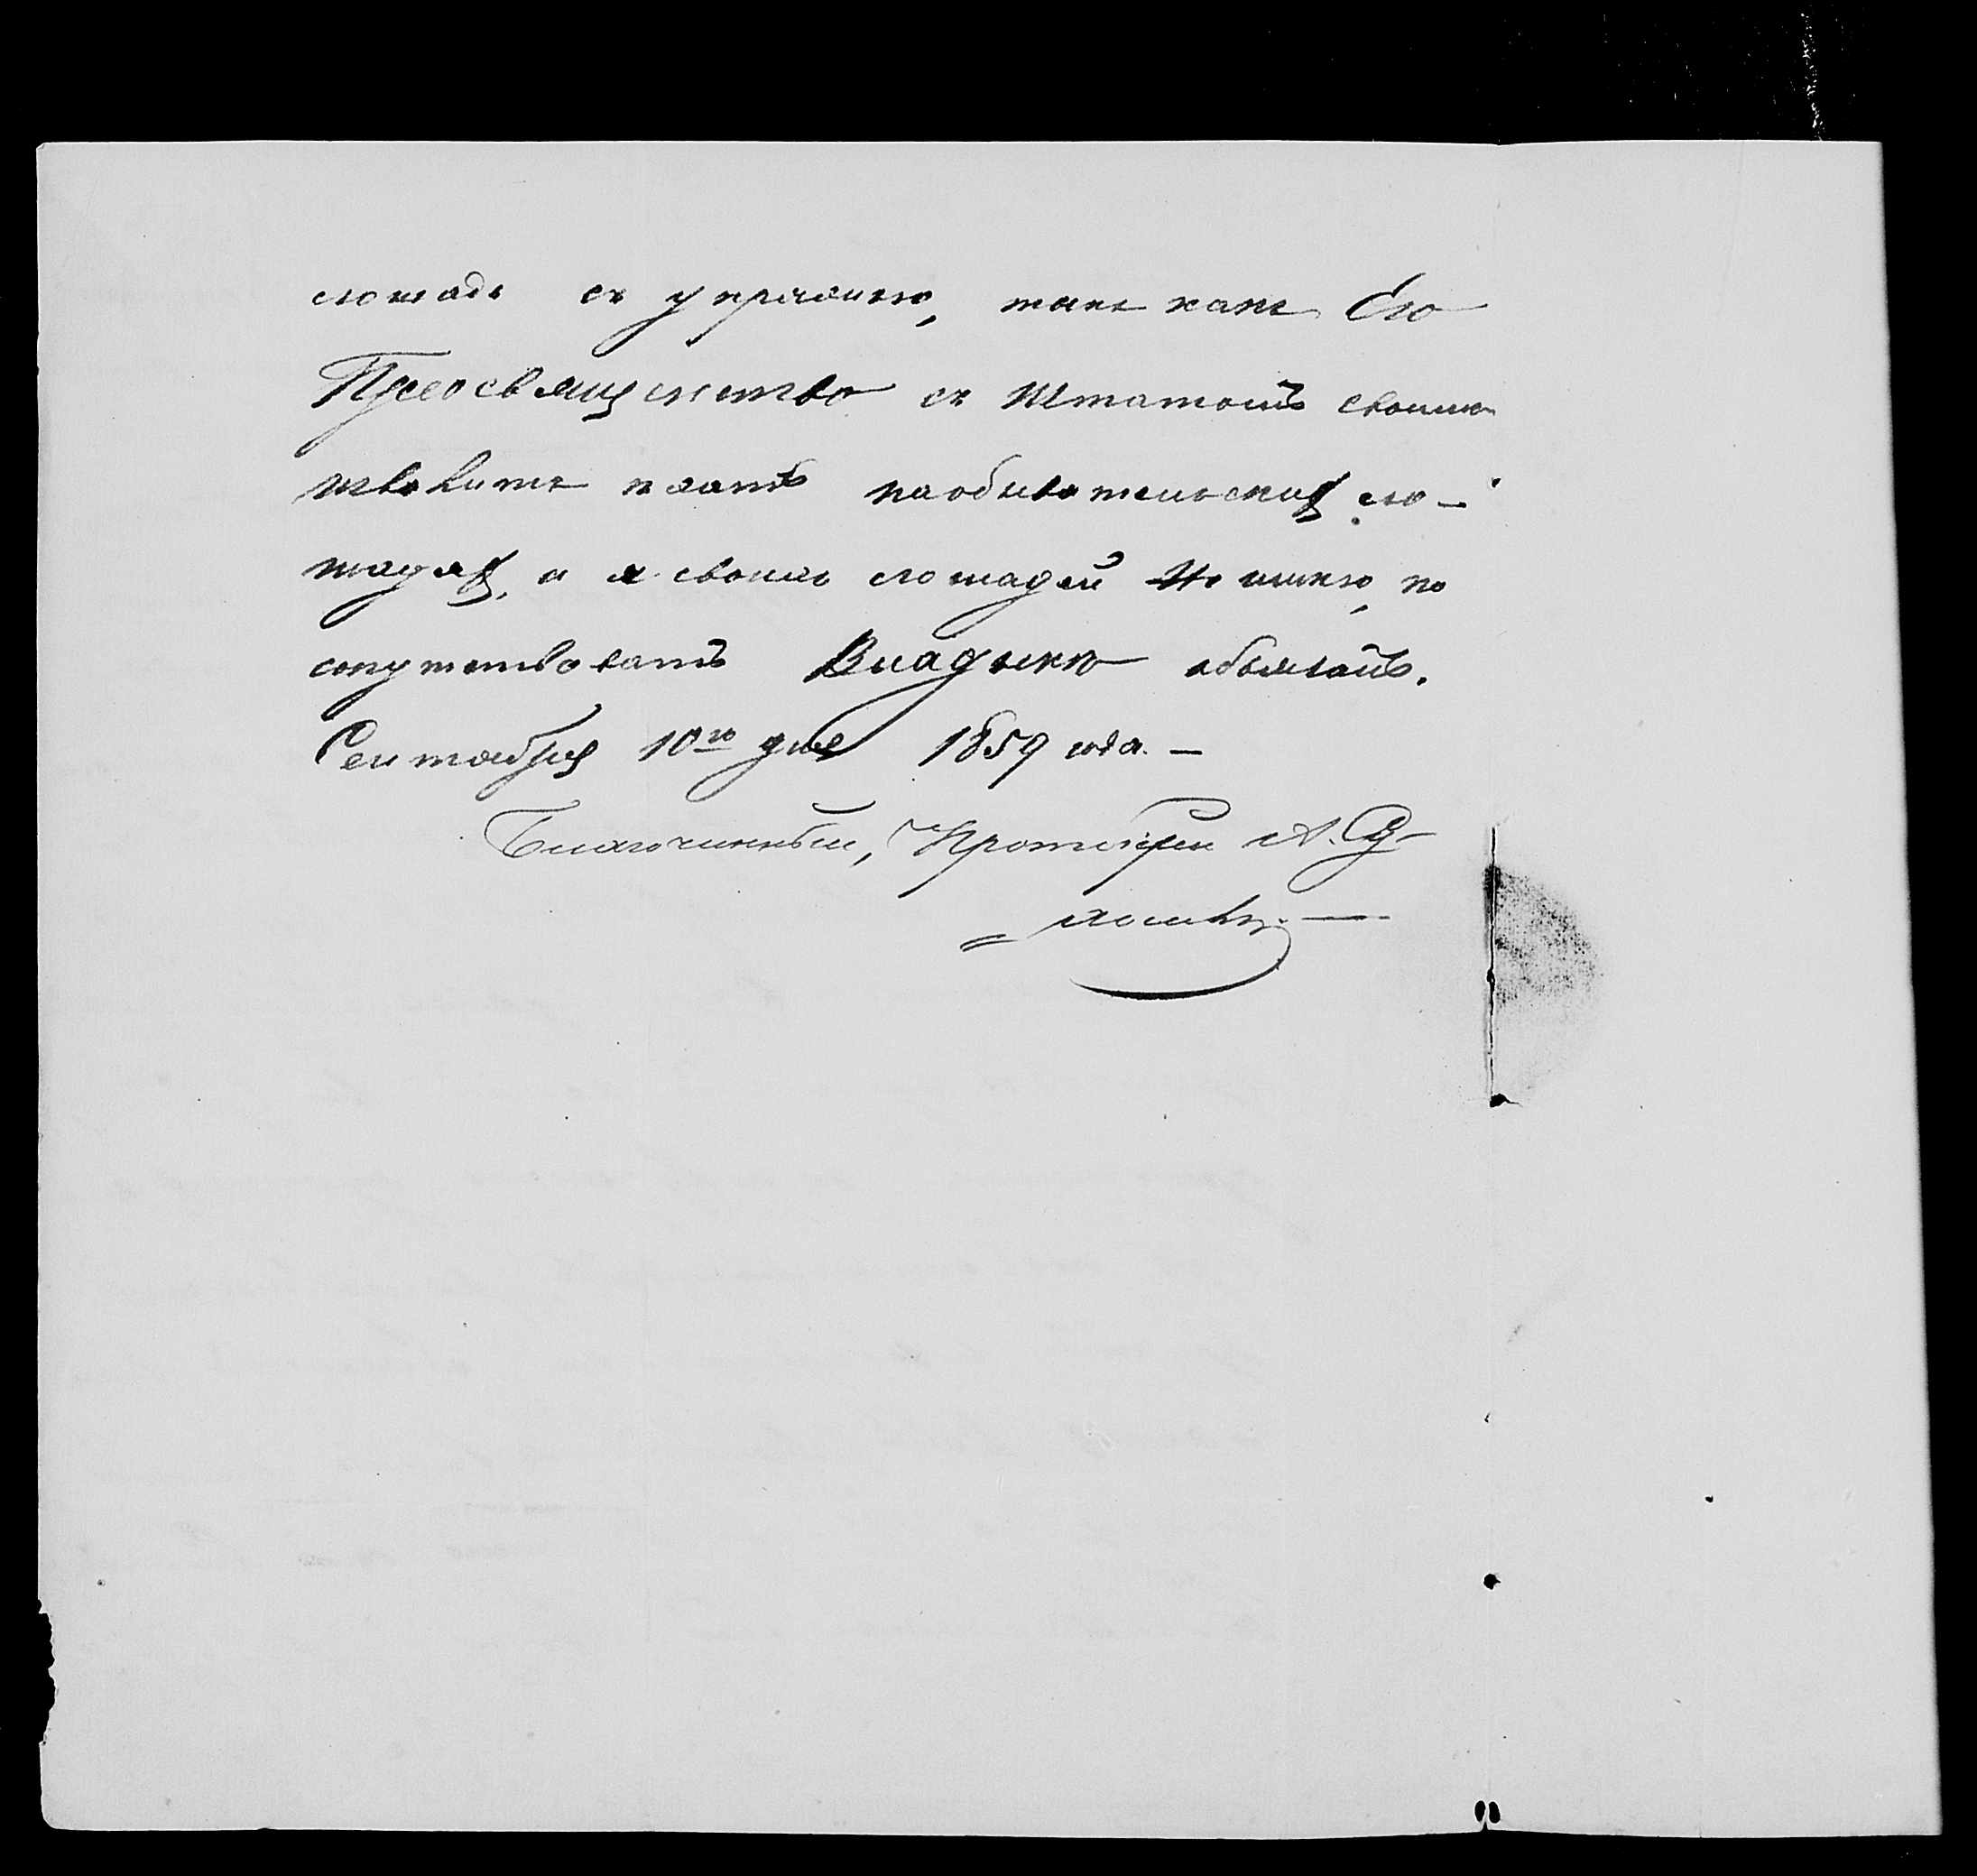 лошади съ упряжью, такъ какъ Его
Преосвященство съ Штатомъ своимъ
изволитъ ѣхать на обывательскихъ ло-
шадяхъ, а я своихъ лошадей не имѣю, но
сопутствовать Владыкѣ обязанъ.
Сентября 10го дня 1859 года. —
Благочинный, Протоіерей А.